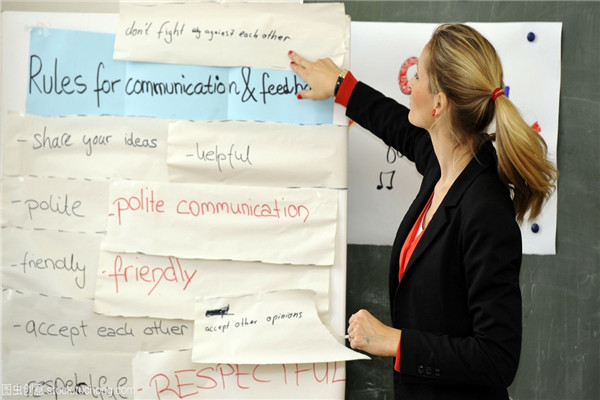 don't fight against each other
Rules for communication &
- share your ideas
- helpful
- polite
- polite communication
- friendly
- friendly
- accept each other
accept other opinions
- respectful
- RESPECTFUL